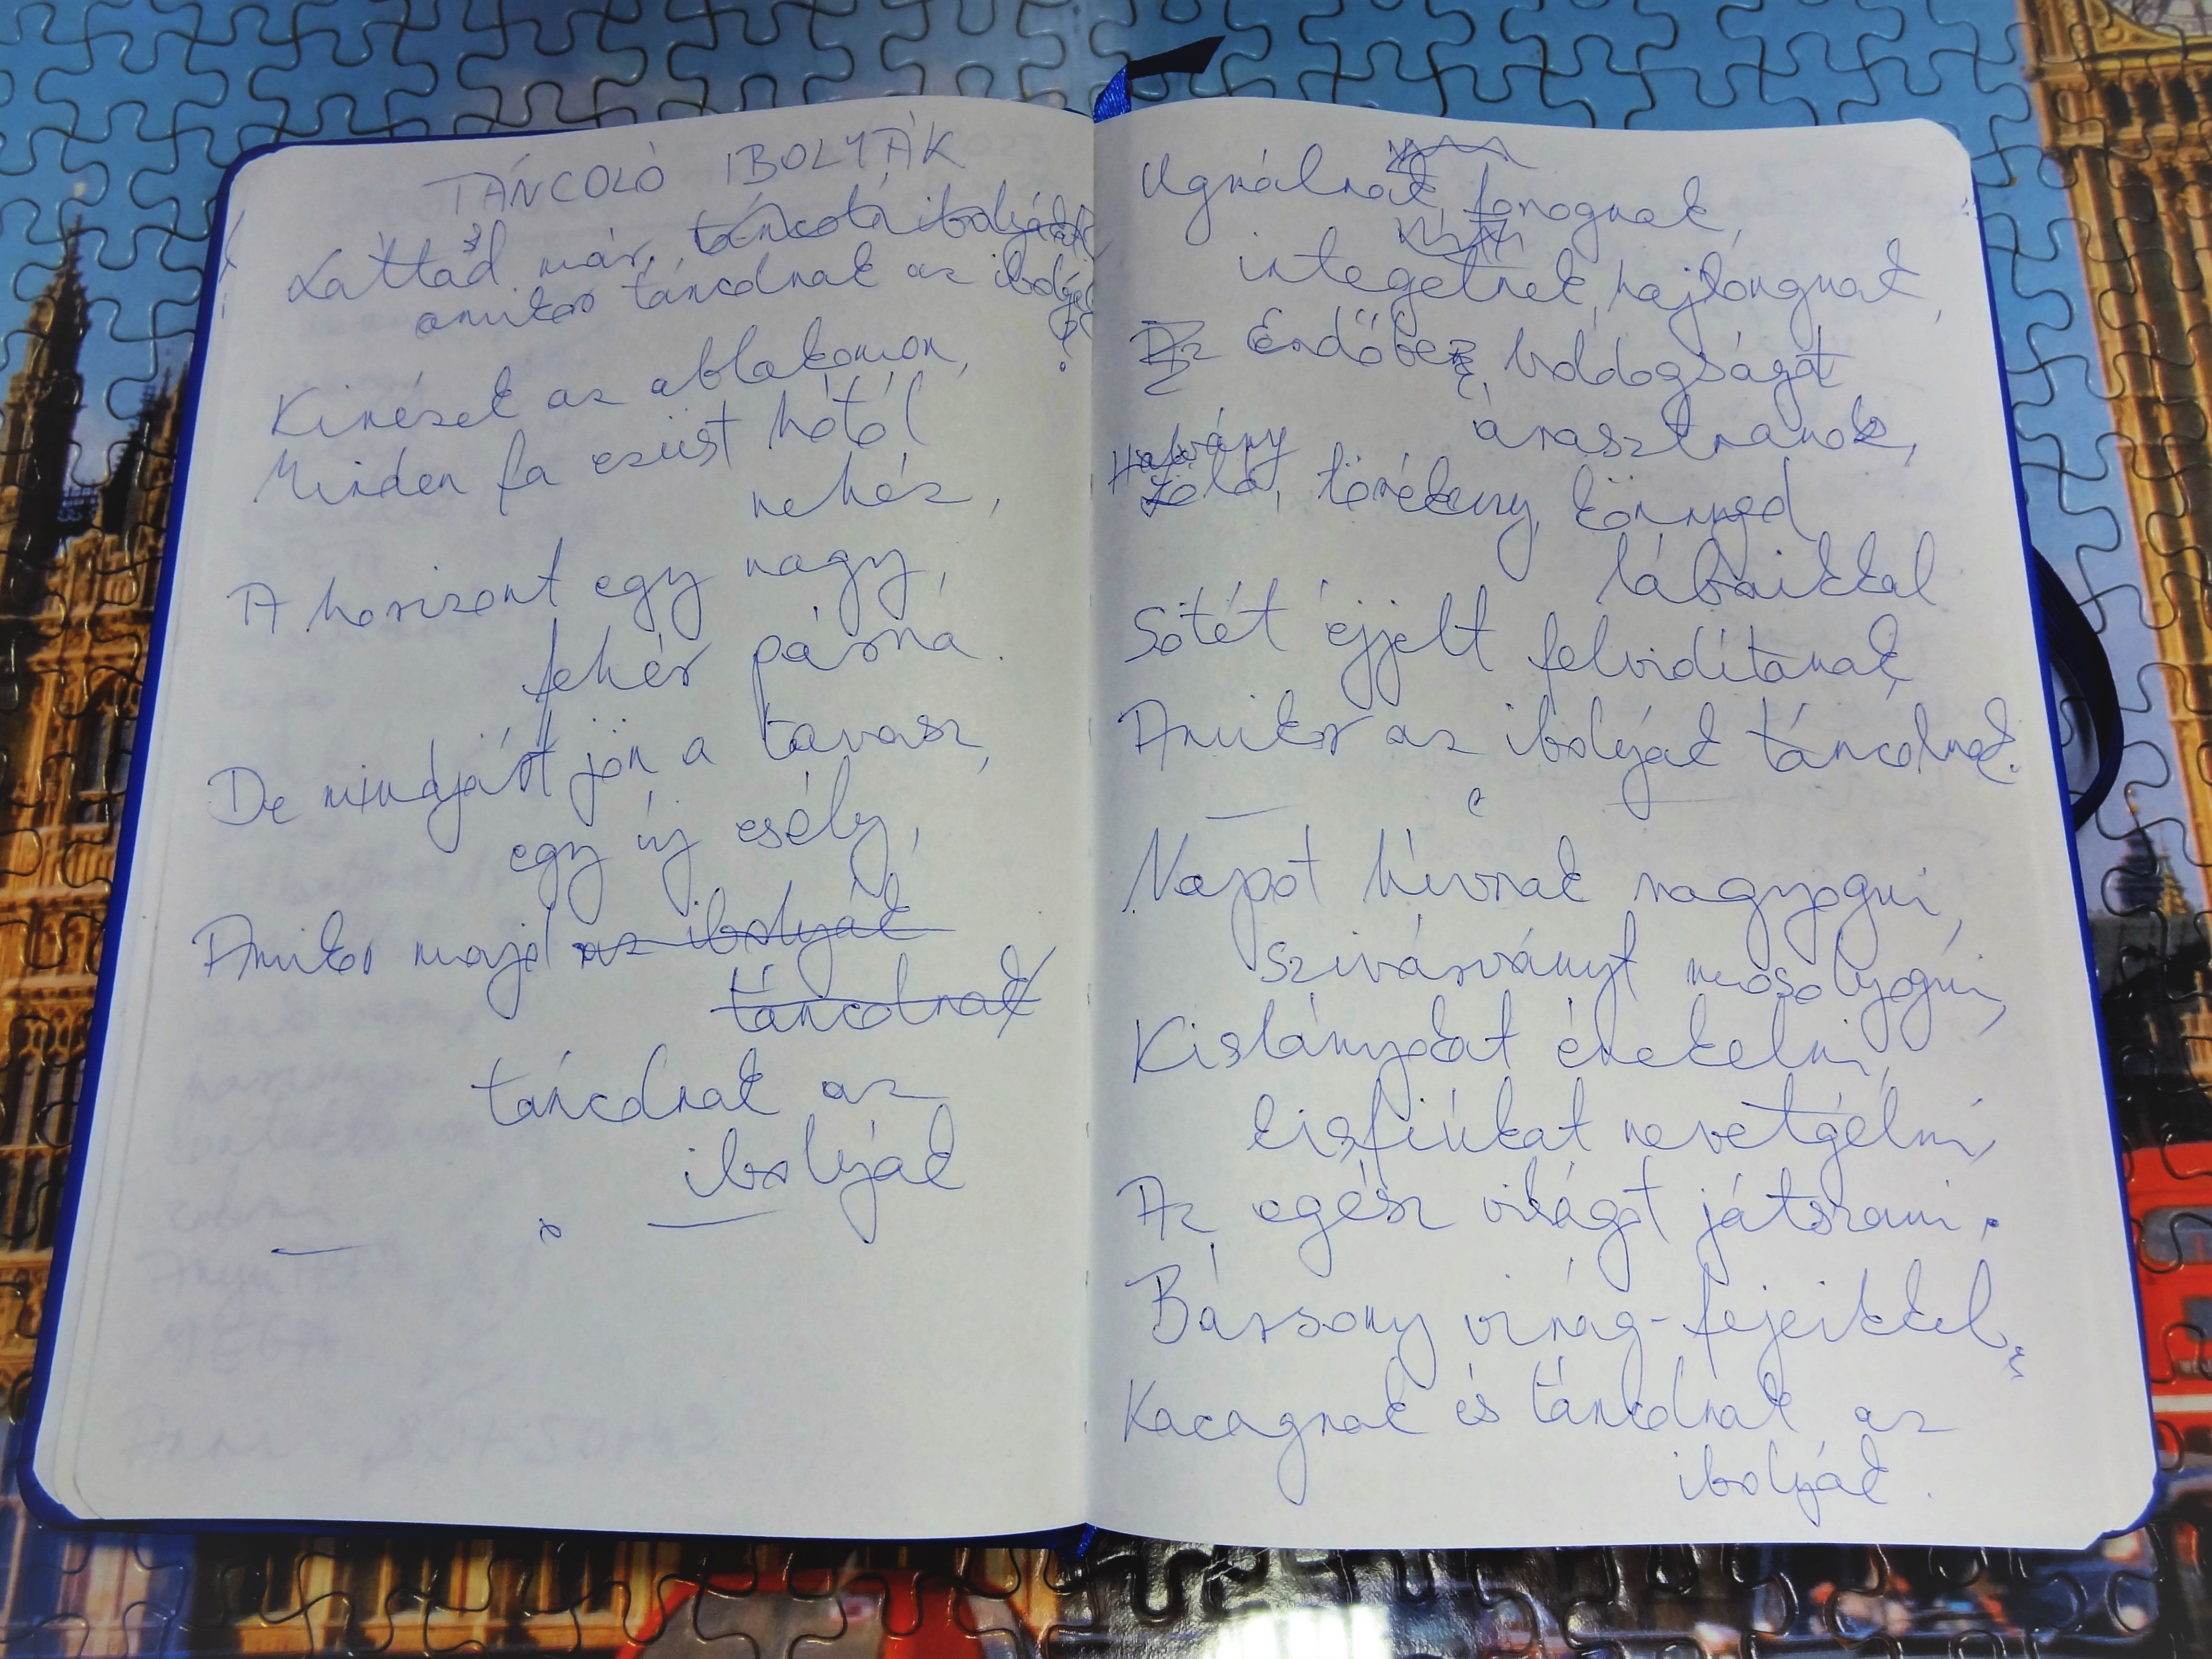 TÁNCOLÓ IBOLYÁK
Láttad már, táncoló ibolyákat
amikor táncolnak az ibolyák?
Kinézek az ablakomon,
Minden fa ezüst hótól
nehéz,
A horizont egy nagy,
fehér párna.
De mindjárt jön a tavasz,
egy új esély,
Amikor majd az ibolyák
táncolnak
táncolnak az
ibolyák
Ugrálnak, forognak,
integetnek, hajlongnak,
Az Erdőbe, boldogságot
árasztanak,
Halvány
Zöld, törékeny, könnyed
lábaikkal
Sötét éjjelt felvidítanak,
Amikor az ibolyák táncolnak.
Napot hívnak ragyogni,
szivárványt mosolyogni,
Kislányokat énekelni,
kisfiúkat nevetgélni,
Az egész világot játszani.
Bársony virág-fejeikkel,
Kacagnak és táncolnak az
ibolyák.